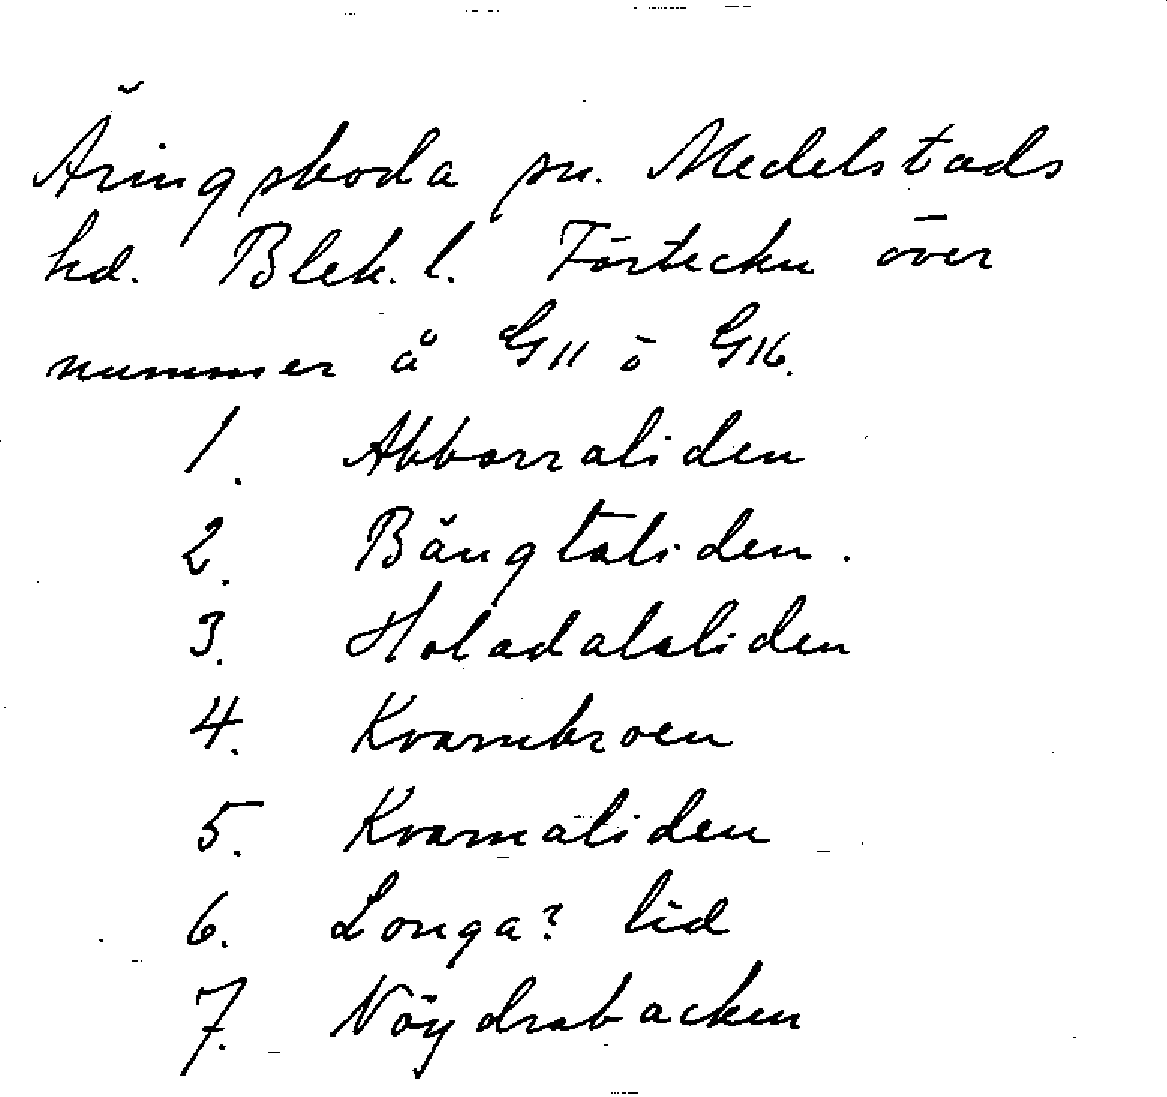 Äringsboda sn. Medelstads
hd. Blek. l. Förteckn över
nummer å G11 ö G16.
1. Abborraliden
2. Bängtaliden.
3. Holadalaliden
4. Kvarnbroen
5. Kvarnaliden
6. Longa? lid
7. Nöydrabacken